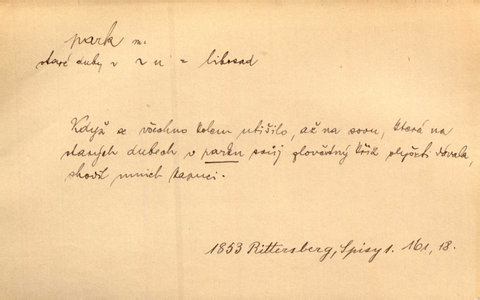 park m.
staré duby v 2 u = libosad
Když se všechno kolem utišilo, až na sovu, která na
starých dubech v parku svůj zlověstný křik slyšeti dávala,
shodil mnich kapuci.
1853 Rittersberg, Spisy 1. 161, 18.